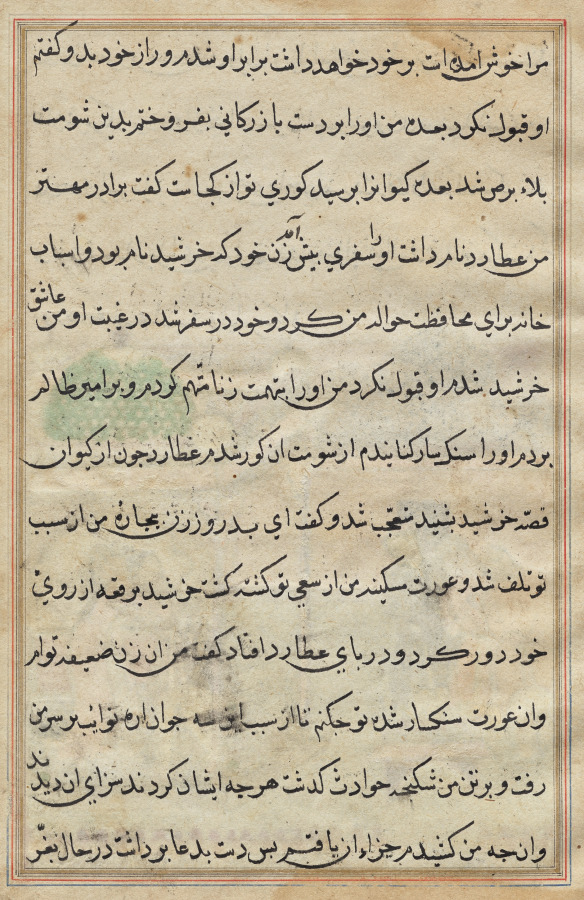 مرا خوش امده است بر خود خواهد داشت برابر او شدم و راز خود بدو کفتم
او قبول نکرد بعده من اورا بر دست بازرکانی بفروختم بدین شومت
بلاء برص شد بعده کیوانرا برسید کوری تو از کجاست کفت برادر مهتر
من عطارد نام داشت اورا سفری بیش آمد زن خود که خرشید نام بود و اسباب
خانه برای محافظت حواله من کرد و خود در سفر شد در غیبت او من عاشق
خرشید شدم او قبول نکرد من اورا بتهمت زنا متّهم کردم و بر امیر ظالم
بردم اورا سنکسار کنایندم از شومت ان کور شدم عطارد جون از کیوان
قصّه خرشید بشنید متعجّب شد و کفت ای بدروز زن بیجاره من از سبب
تو تلف شد و عورت سکینه من از سعی تو کشته کشت خرشید برقعه از روی
خود دور کرد و در بای عطارد افتاد کفت من ان زن ضعیفه توام
وان عورت سنکسار شده تو حکنم تا از سبب این سه جوان اره نوایب بر سر من
رفت و بر تن من شکنجه حوادث کدشت هرجه ایشان کردند سزای ان دیدند
وان جه من کشیدم جزاء ان یافتم بس دست بدعا برداشت در حال بغرّ